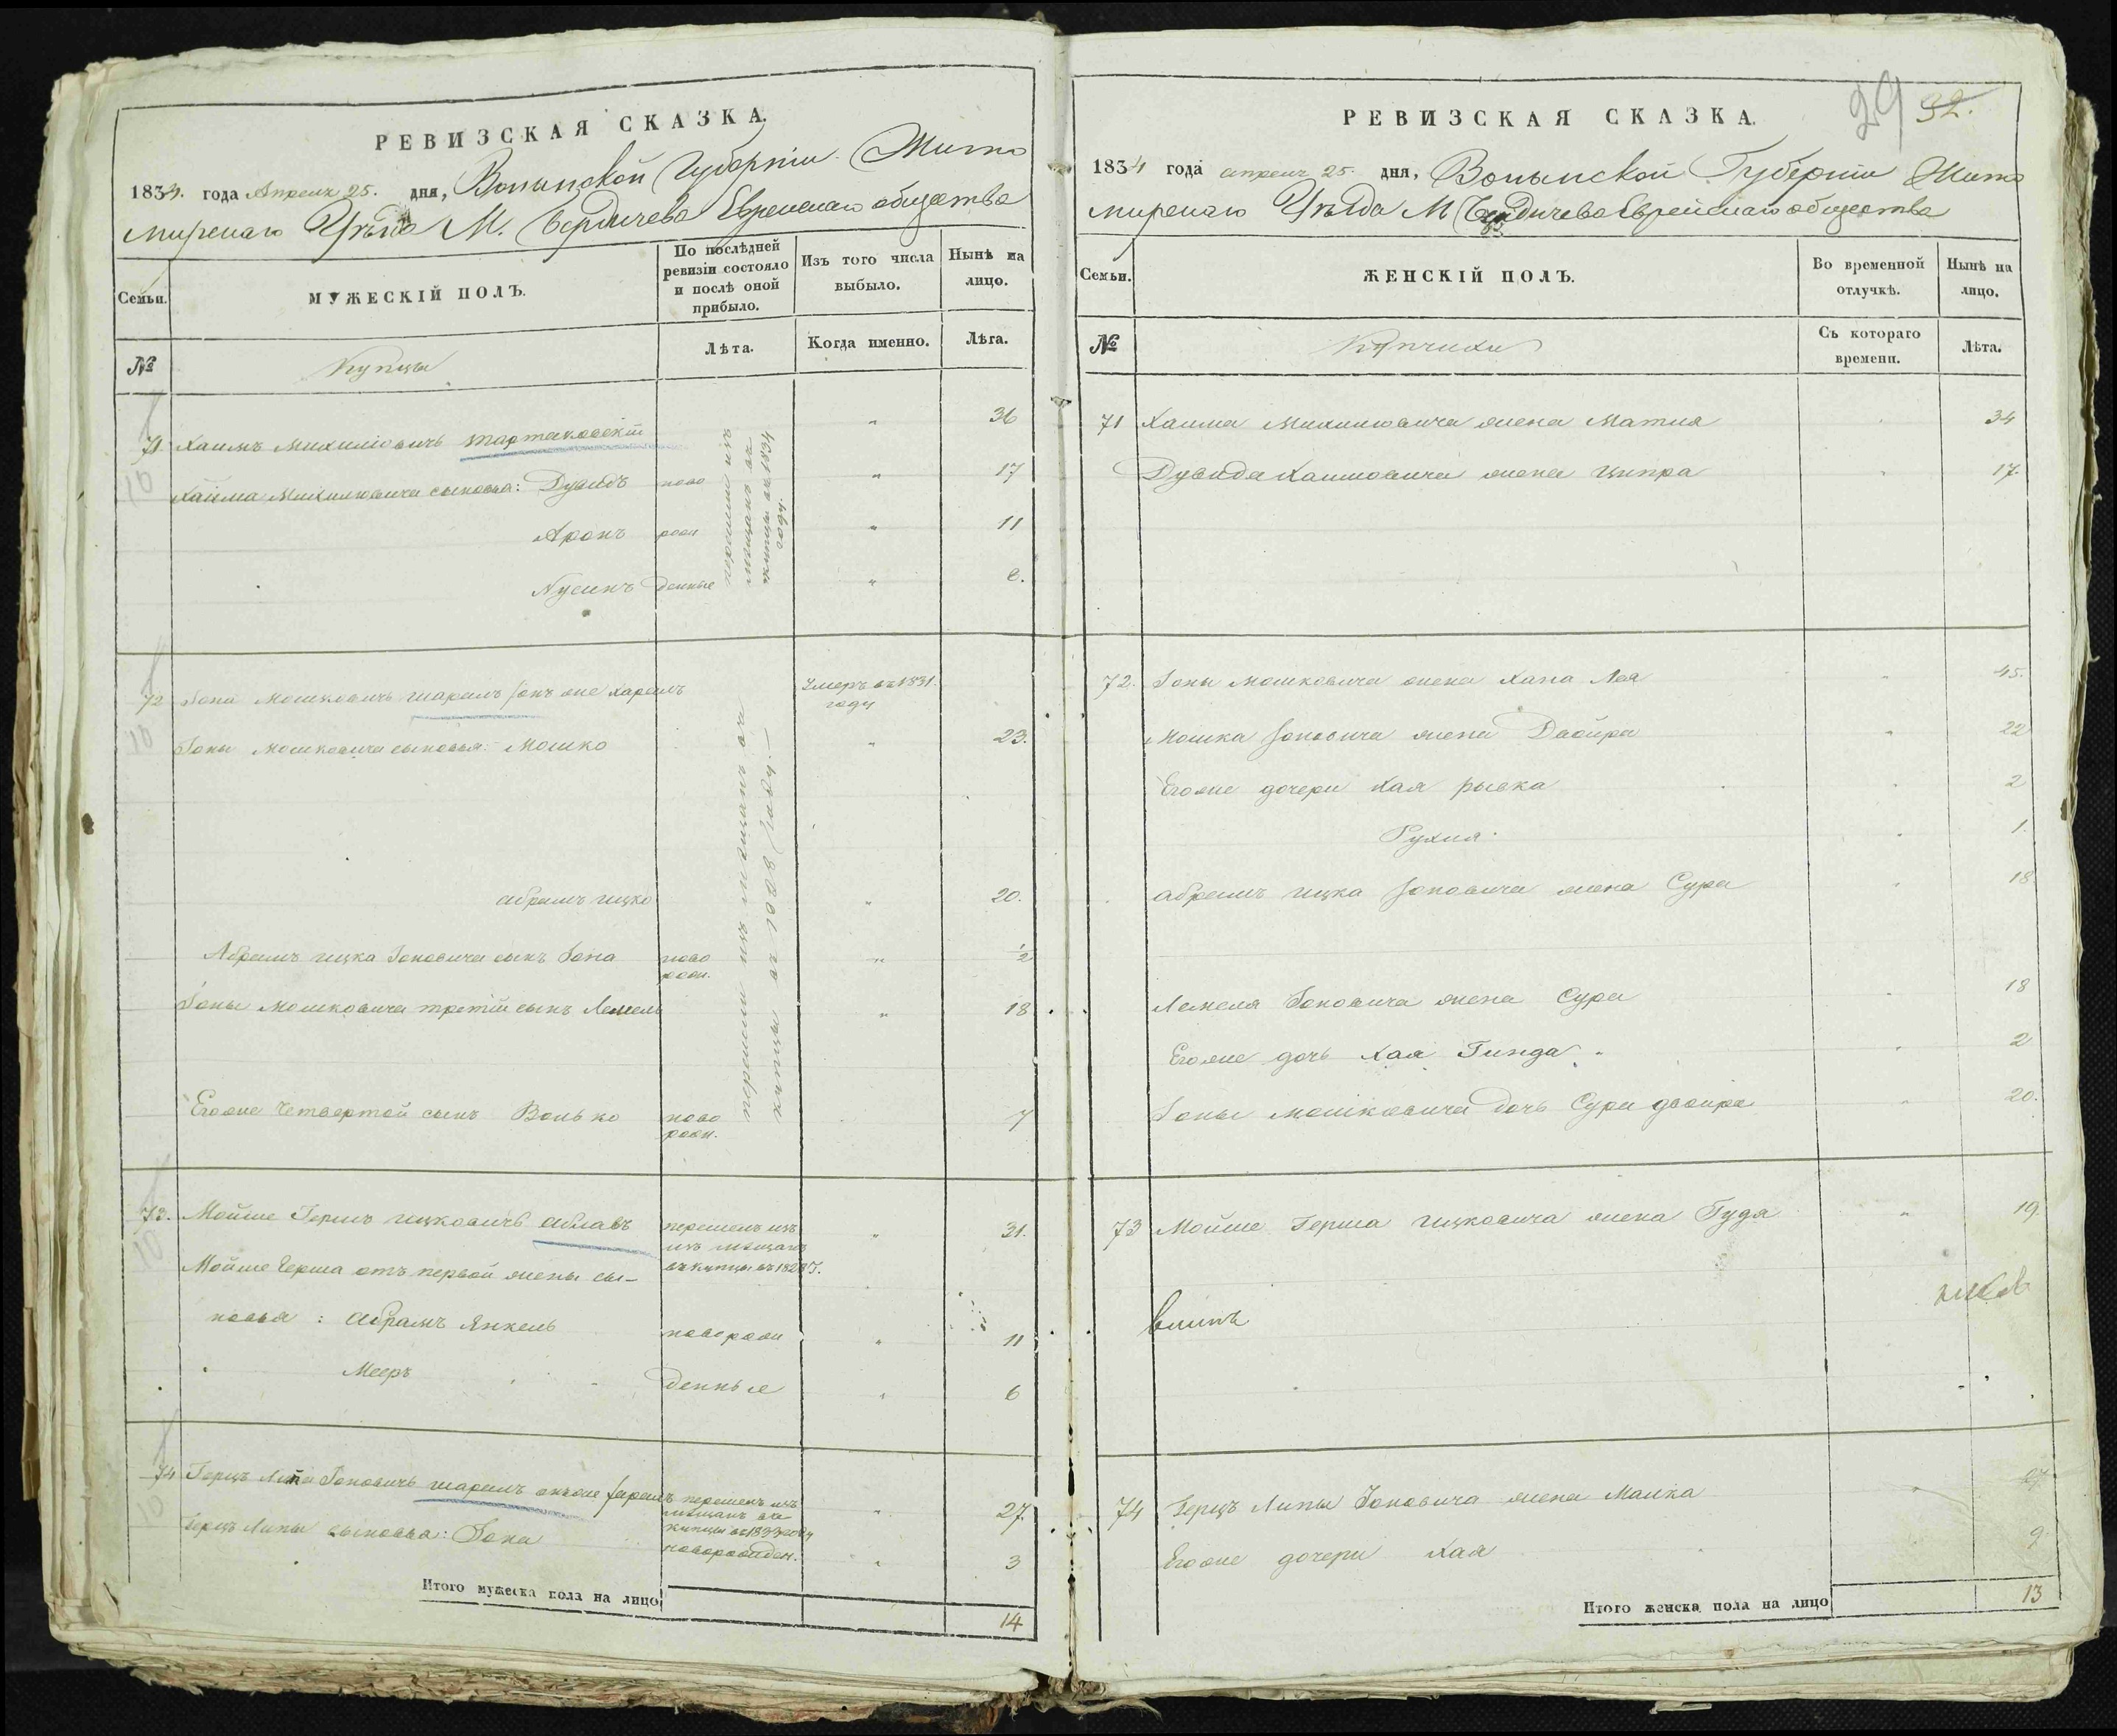 РЕВИЗСКАЯ СКАЗКА.
1834. года Апреля 25. дня, Волынской Губернии Жито
мирскаго Уѣзда М. Бердичева Еврейскаго общества
Семьи.
МУЖЕСКІЙ ПОЛЪ.
По послѣдней ревизіи состояло и послѣ оной прибыло.
Изъ того числа выбыло.
Нынѣ на лицо.
№
Купцы
Лѣта.
Когда именно.
Лѣта.
71 Хаимъ Михилювичъ Тартаковскій " 36
10
Хаима Михилювича сыновья: Дувидъ ново " 17
Аронъ рож " 11
Нусинъ денные " 8.
перешли изъ мещанъ въ купцы въ 1834 году.
72 Іона Мошковичъ Шараль онъ же Хараль Умеръ въ 1831. году
10
Іоны Мошковича сыновья: Мошко " 23.
абрамъ ицко " 20.
Абрамъ ицка Іоновича сынъ Іона ново рож. " ½
Іоны Мошковича третій сынъ Лемель " 18
Егоже Четвертой сынъ Волько ново рож. 7
перешли изъ мещанъ въ купцы въ 1828 году.
73. Мойше Гершъ ицковичъ Аблавъ " 31.
10
перешелъ изъ
изъ мещанъ
въ купцы въ
Мойше Герша отъ первой жены сы-
новья: Абрамъ Янкель новорож " 11
Мееръ денные " 6
74 Герцъ Липа Іоновичъ Шараль онъже Хараль " 27.
10
перешелъ изъ
мещанъ въ
купцы въ 1833 году
Герцъ Липы сыновья: Іона новорожден. " 3
Итого мужеска пола на лицо 14
29 32.
РЕВИЗСКАЯ СКАЗКА.
1834 года апреля 25. дня, Волынской Губерніи Жито
мирскаго Уѣзда М Бердичева Еврейскаго общества
Семьи.
ЖЕНСКІЙ ПОЛЪ.
Во временной отлучкѣ.
Нынѣ на лицо.
№
Купчихи
Съ котораго времени.
Лѣта.
71 Хаима Михилювича жена Матля " 34
Дувида Хаимовича жена Ципра " 17.
72. Іоны Мошковича жена Хана Лея " 45.
Мошка Іоновича жена Двойра " 22
Егоже дочери Хая рывка " 2
Рухля " 1.
абрамъ ицка Іоновича жена Сура " 18
Лемеля Іоновича жена Сура " 18
Егоже дочь Хая Гинда " 2
Іоны мошковича дочь Сура двойра " 20.
73 Мойше Герша ицковича жена Гудя " 19.
74 Герцъ Липы Іоновича жена Малка " 27
Егоже дочери Хая 9
Итого женска пола на лицо 13